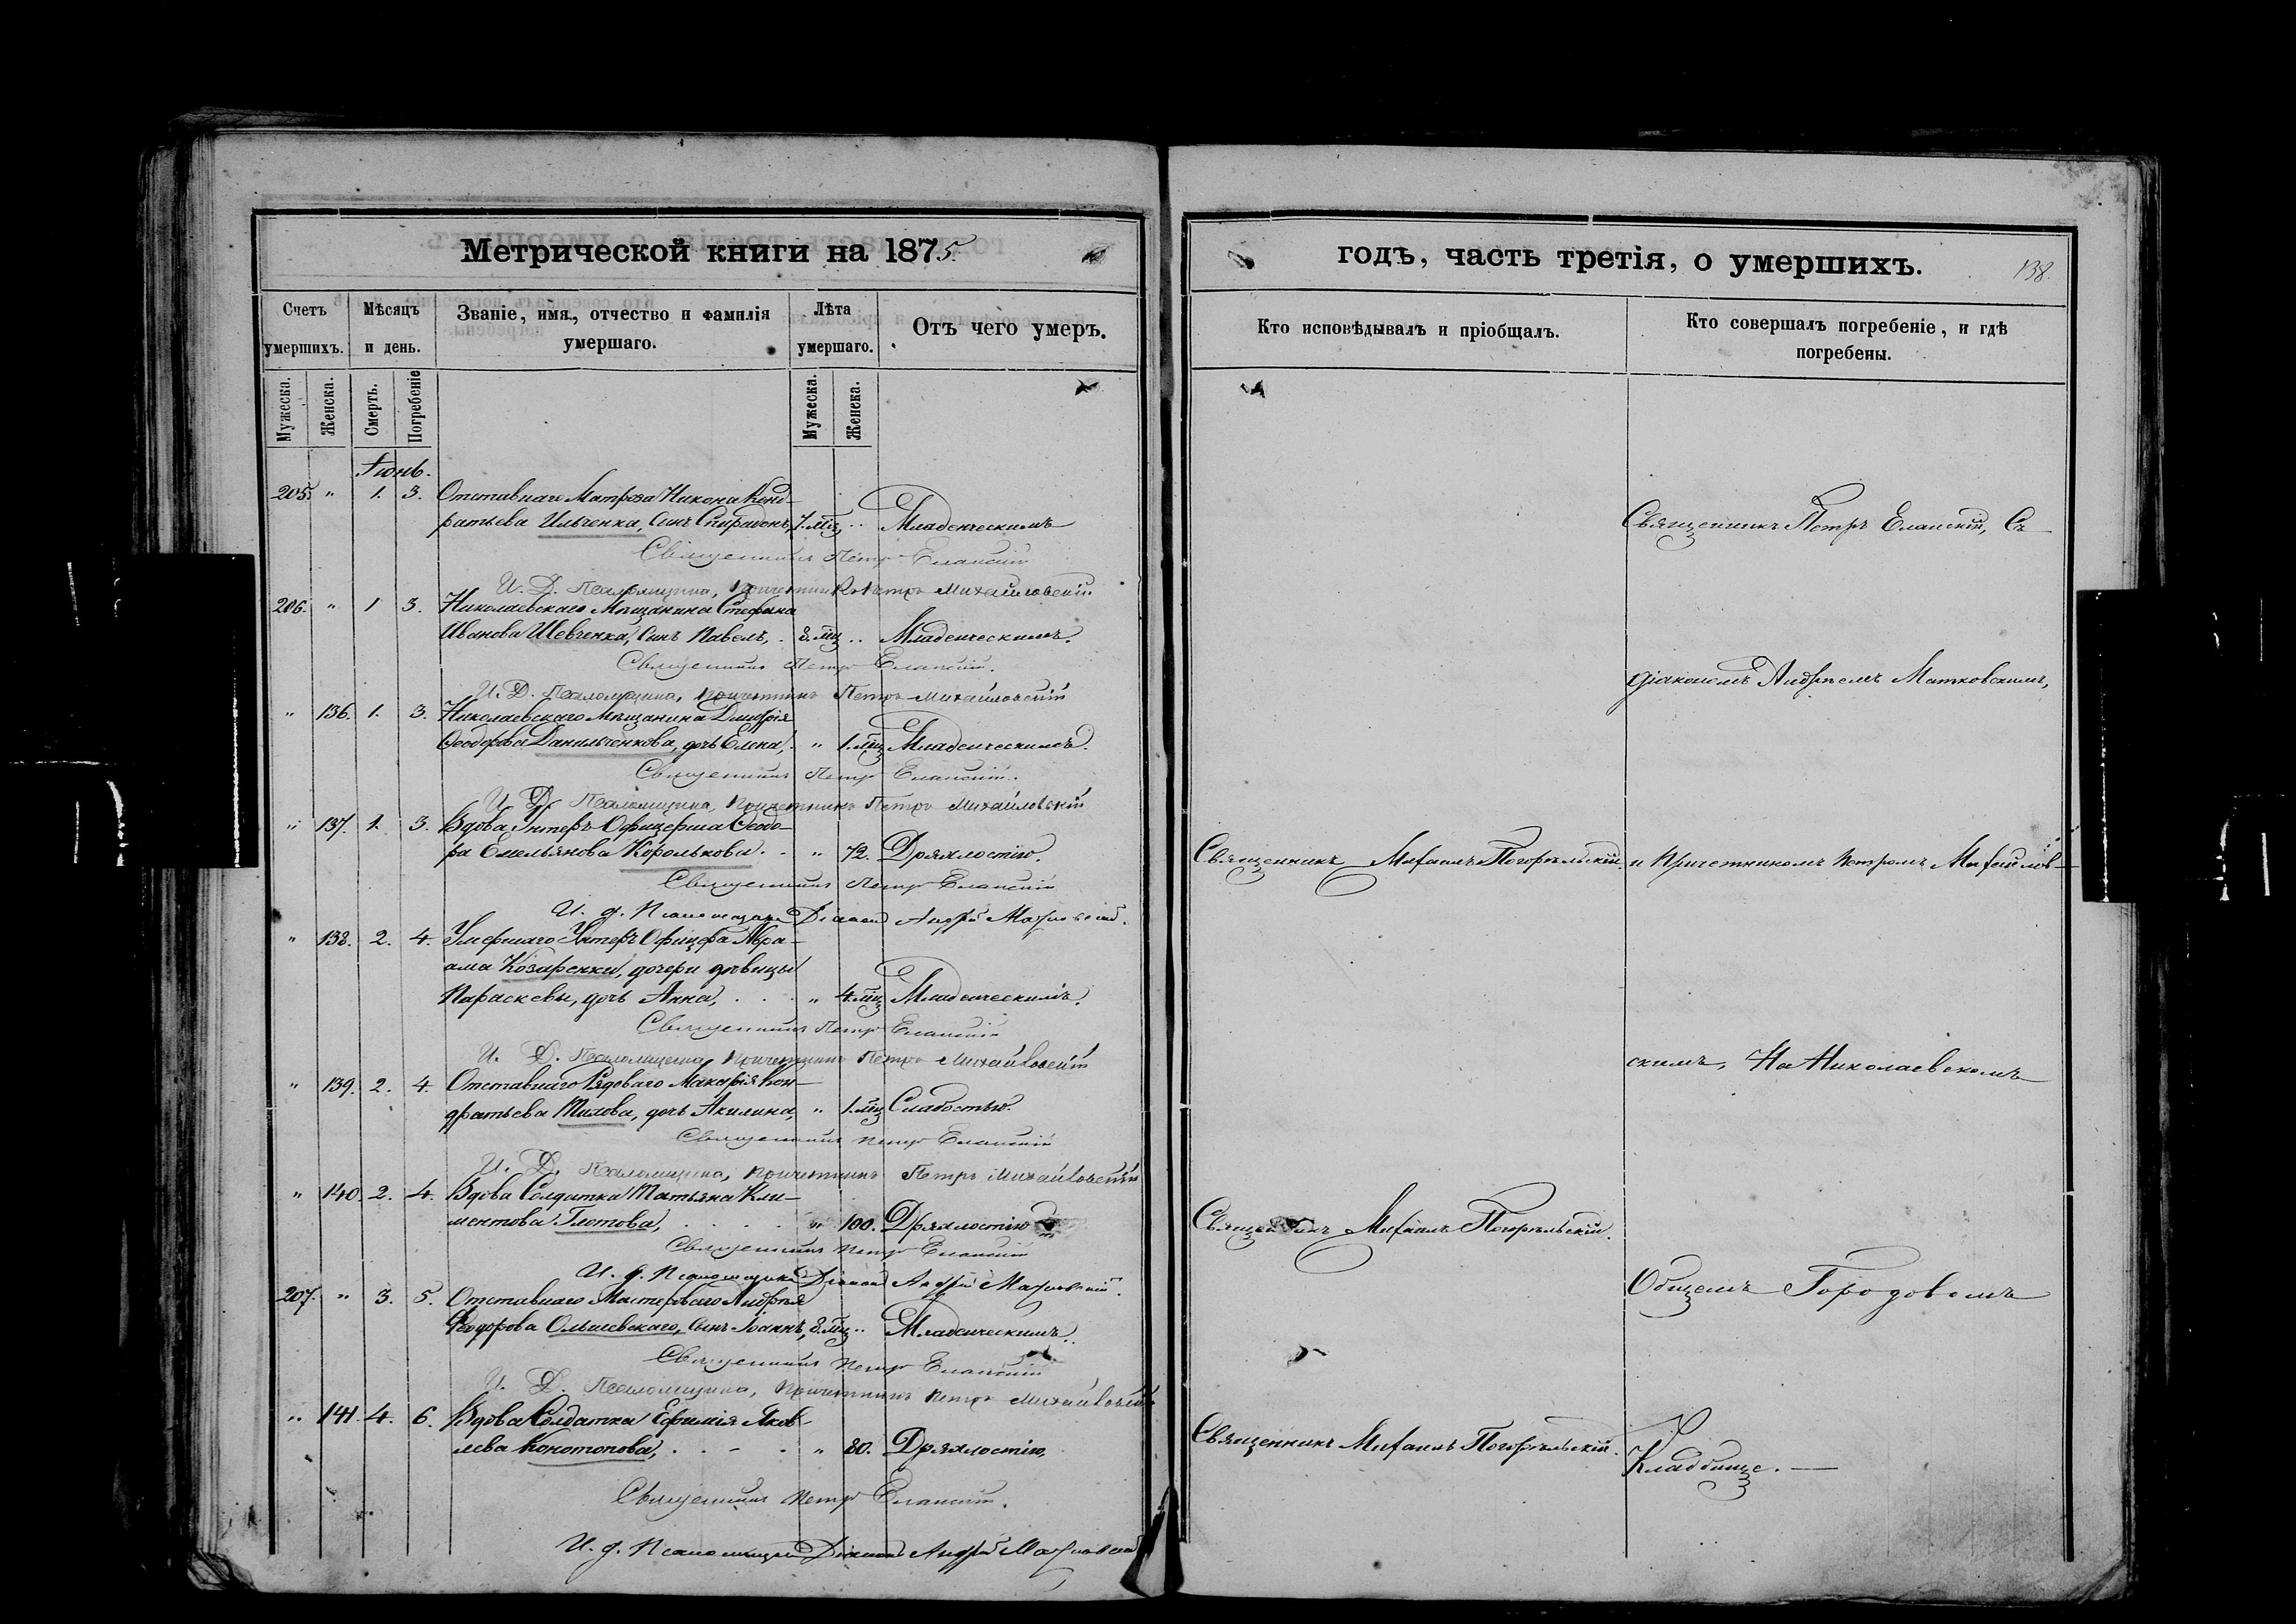 Метрической книги на 1875.
годъ, часть третія, о умершихъ.
138.
Счетъ умершихъ.
Мѣсяцъ и день.
Званіе, имя, отчество и фамилія умершаго.
Лѣта умершаго.
Отъ чего умеръ.
Кто исповѣдывалъ и пріобщалъ.
Кто совершалъ погребеніе, и гдѣ погребены.
Мужеска.
Женска.
Смерть.
Погребеніе
Мужеска.
Женска.
Іюнь.
205. " 1. 3. Отставнаго Матроза Никона Конд-
ратьева Ильченка, сынъ Спиридонъ, 7. мц. " Младенческимъ
Священникъ Петръ Еланскій, Съ
Священникъ Петръ Еланскій
И. Д. Псаломщика, Причетникъ Петръ Михайловскій
206. " 1 3. Николаевскаго Мѣщанина Стефана
Иванова Шевченка, сынъ Павелъ, 8. мц. " Младенческимъ.
Священникъ Петръ Еланскій.
діакономъ Андреемъ Матковскимъ,
И. Д. Псаломщика, Причетникъ Петръ Михайловскій
" 136. 1. 3. Николаевскаго Мѣщанина Димитрія
Ѳеодорова Данильченкова, дочь Елена, " 1. мц. Младенческимъ.
Священникъ Петръ Еланскій.
И. Д. Псаломщика, Причетникъ Петръ Михайловскій
" 137. 1. 3. Вдова Унтеръ-Офицерша Ѳеодо-
ра Емельянова Королькова. " 72. Дряхлостію.
Священникъ Михаилъ Погорѣльскій.
и Причетникомъ Петромъ Михайлов-
Священникъ Петръ Еланскій
И. д. Псаломщика Діаконъ Андрей Матковскій.
" 138. 2. 4. Умершаго Унтеръ Офицера Авра-
ама Козаренки, дочери дѣвицы
Параскевы, дочь Анна, " 4. мц. Младенческимъ.
Священникъ Петръ Еланскій
И. Д. Псаломщика, Причетникъ Петръ Михайловскій
скимъ, На Николаевскомъ
" 139. 2. 4. Отставнаго Рядоваго Макарія Кон-
дратьева Титова, дочь Акилина, " 1. мц. Слабостью.
Священникъ Петръ Еланскій
И. Д. Псаломщика, Причетникъ Петръ Михайловскій
" 140. 2. 4. Вдова Солдатка Татьяна Кли-
ментова Глотова, " 100. Дряхлостію
Священникъ Михаилъ Погорѣльскій.
Священникъ Петръ Еланскій
И. д. Псаломщика Діаконъ Андрей Матковскій.
Общемъ Городовомъ
207. " 3. 5. Отставнаго Мастероваго Андрея
Ѳеодорова Ольшевскаго, сынъ Іоаннъ, 8. мц. " Младенческимъ.
Священникъ Петръ Еланскій
И. Д. Псаломщика, Причетникъ Петръ Михайловскій
" 141. 4. 6. Вдова Солдатка Ефимія Яков-
лева Конотопова, " 80. Дряхлостію.
Священникъ Михаилъ Погорѣльскій.
Кладбище.
Священникъ Петръ Еланскій.
И. д. Псаломщика Діаконъ Андрей Матковскій